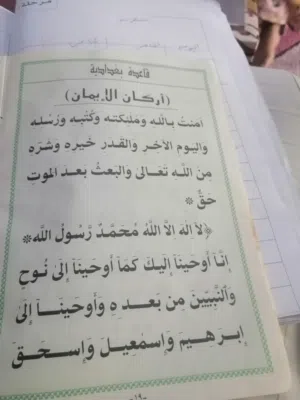 قاعدة بغدادية
(أركان الإيمان)
آمنتُ بِاللهِ وَمَلٰئِكَتِه وَكُتُبِه وَرُسُلِه
وَاليَومِ الآخِرِ وَالقَدَرِ خَيرِه وَشَرِّه
مِنَ اللهِ تَعَالىٰ وَالبَعثُ بَعدَ المَوتِ
حَقٌّ *
﴿لَا اِلٰهَ اِلَّا اللهُ مُحَمَّدٌ رَّسُولُ اللهِ*
إِنَّآ أَوحَينَآ إِلَيكَ كَمَآ أَوحَينَآ إِلىٰ نُوحٍ
وَٱلنَّبِيِّينَ مِن بَعدِهِ وَأَوحَينَآ إِلىٰ
إِبرٰهِيمَ وَإِسمٰعِيلَ وَإِسحٰقَ
-١٩-